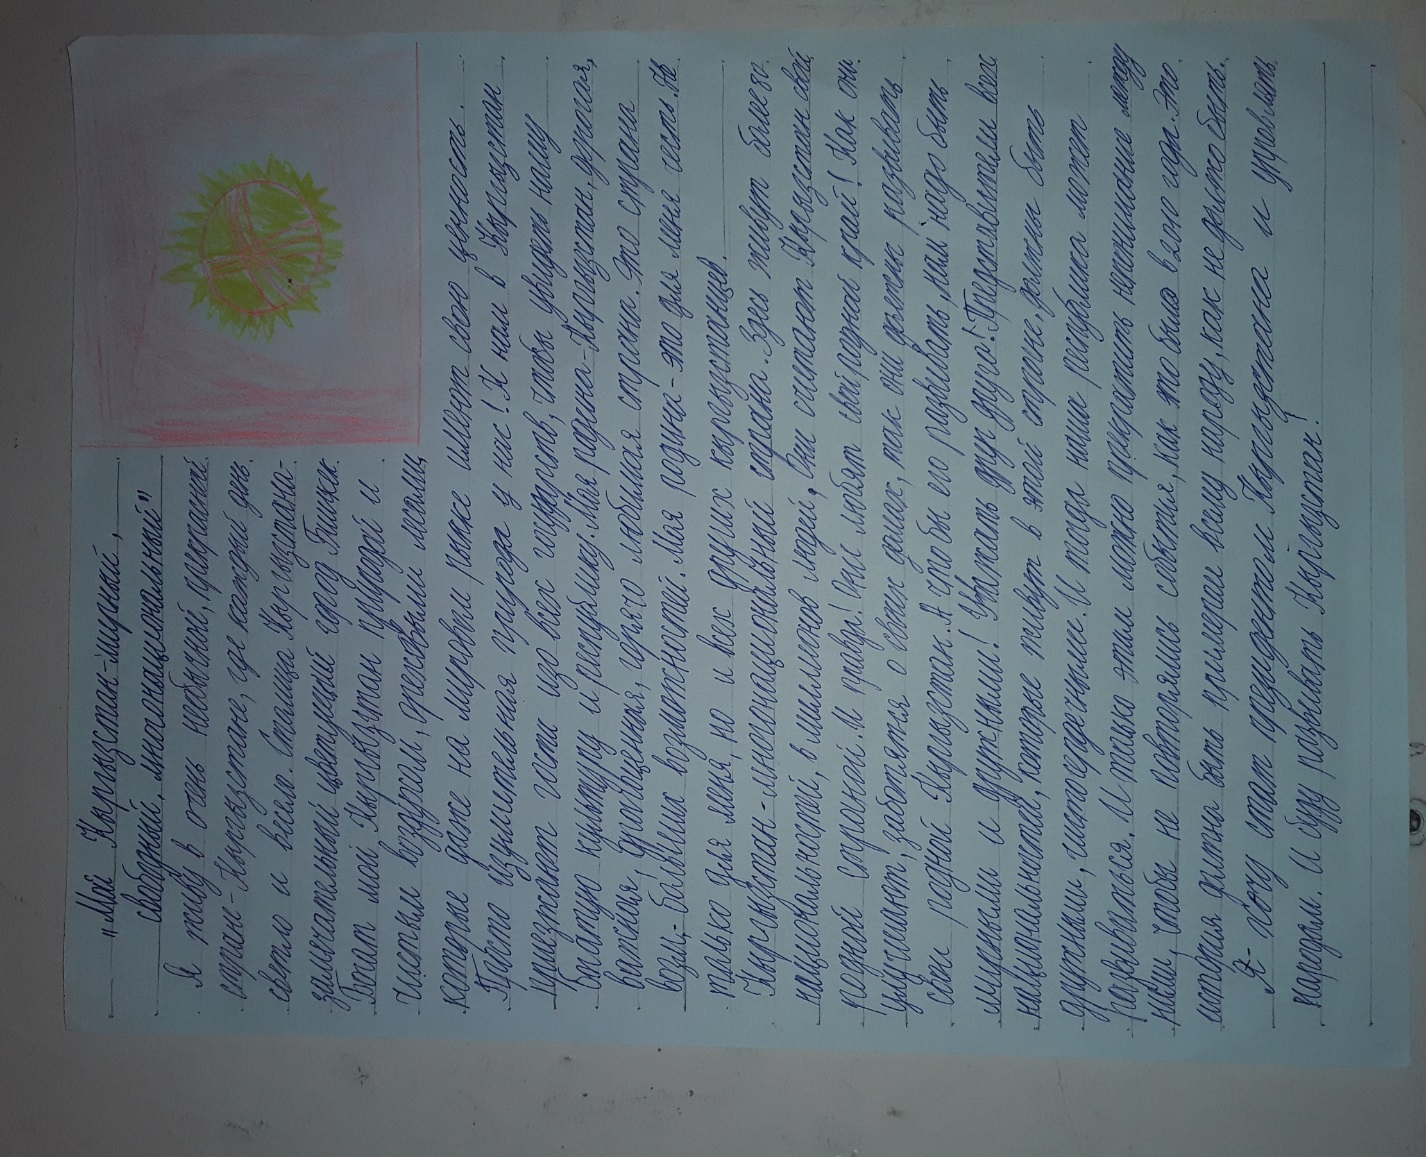 "Мой Кыргызстан-мирный,
свободный, многонациональный"
Я живу в очень необычной, прекрасной
стране-Кыргызстане, где каждый день
светло и весело. Столица Кыргызстана-
замечательный цветущий город Бишкек.
Богат мой Кыргызстан природой и
чистым воздухом, ореховыми
которые даже на мировом рынке имеют свою ценность.
Просто изумительная природа у нас! К нам в Кыргызстан
приезжают гости изо всех государств, чтобы увидеть нашу
богатую культуру и республику. Моя родина-Кыргызстан, дорогая,
важная, драгоценная, горячо любимая страна. Это страна
больших возможностей. Моя родина-это для меня честь. Не
только для меня, но и всех других кыргызстанцев.
Кыргызстан-многонациональная страна. Здесь живут более 80
национальностей, 6 миллионов людей, они считают Кыргызстан своей
родной стороной. И правда! Они любят свой родной край! Как они
улучшают, заботятся о своих домах, так они должны развивать
свой родной Кыргызстан. А чтобы его развивать, нам надо быть
мирными и дружными! Уважать друг друга! Представители всех
национальностей, которые живут в этой стране, должны быть
дружными, чистосердечными. И тогда наша республика может
развиваться. И только этим можно прекратить непонимание между
нами, чтобы не повторялись события, как это было в 2010 году. Эта
история должна быть примером всему народу, как не должно быть.
Я- хочу стать президентом Кыргызстана и управлять
народом. И буду развивать Кыргызстан!